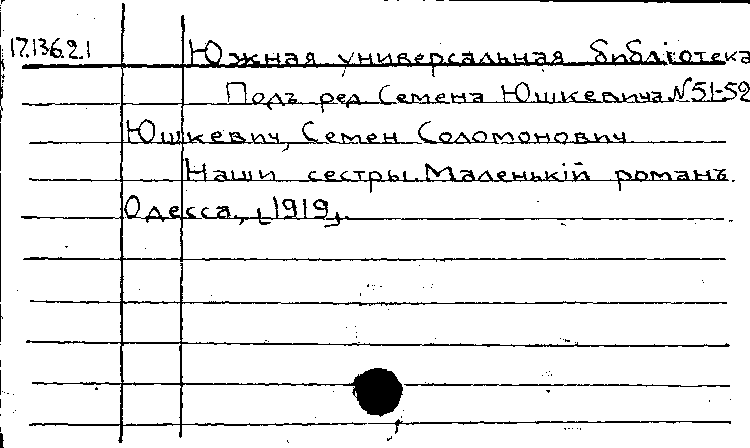 17.136.2.1 Южная универсальная библіотека
Подъ ред. Семена Юшкевича №51-52
Юшкевич, Семен Соломонович
Наши сестры. Маленькій романъ.
Одесса, [1919].